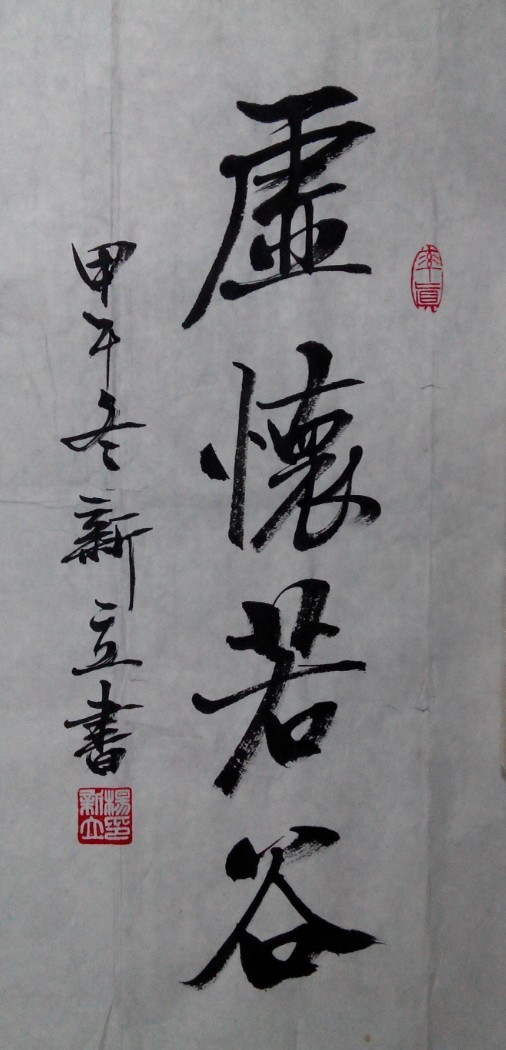 虛懷若谷
甲午冬新立書
楊新立印